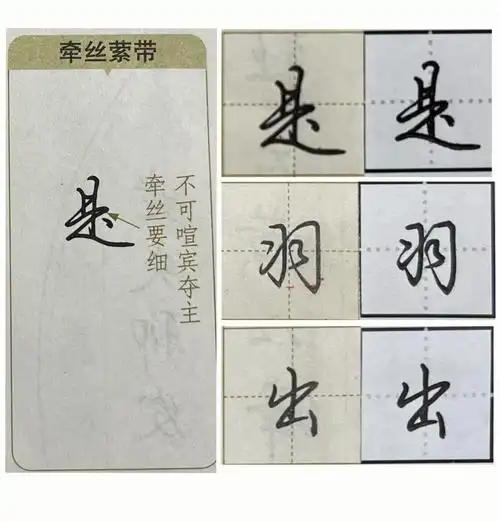 牵丝萦带
是
不可喧宾夺主
牵丝要细
是 是
羽 羽
出 出